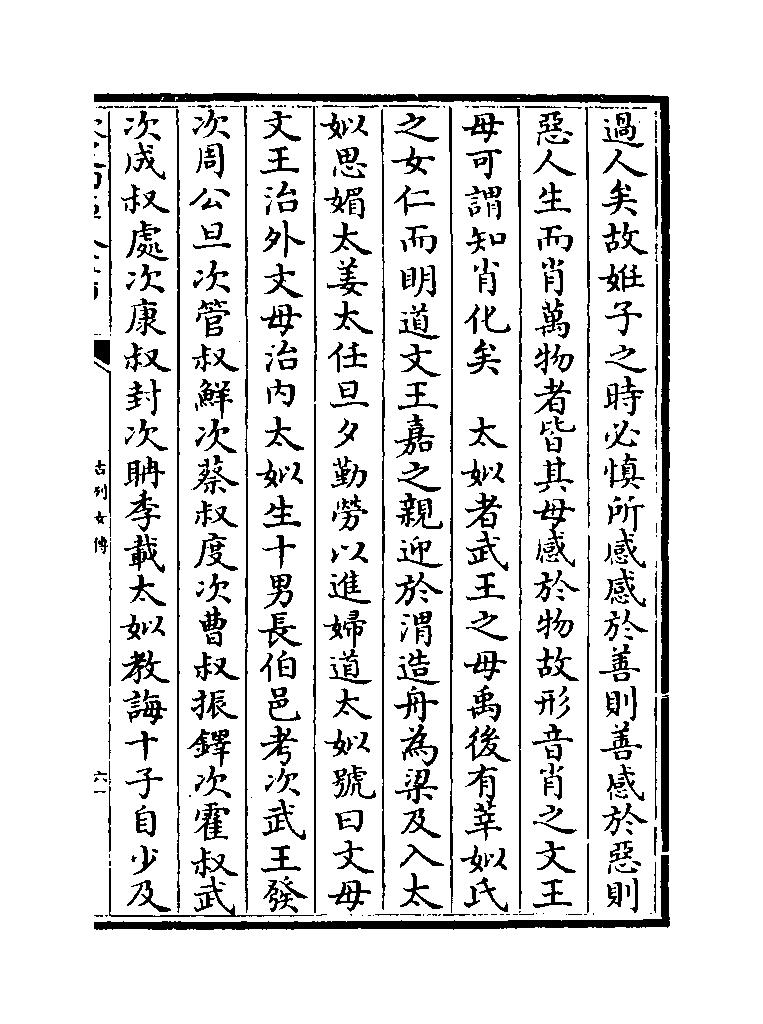 過人矣故姙子之時必慎所感感於善則善感於惡則
惡人生而肖萬物者皆其母感於物故形音肖之文王
母可謂知肖化矣　太姒者武王之母禹後有莘姒氏
之女仁而明道文王嘉之親迎於渭造舟為梁及入太
姒思媚太姜太任旦夕勤勞以進婦道太姒號曰文母
文王治外文母治内太姒生十男長伯邑考次武王發
次周公旦次管叔鮮次蔡叔度次曹叔振鐸次霍叔武
次成叔處次康叔封次聃季載太姒教誨十子自少及
古列女傳